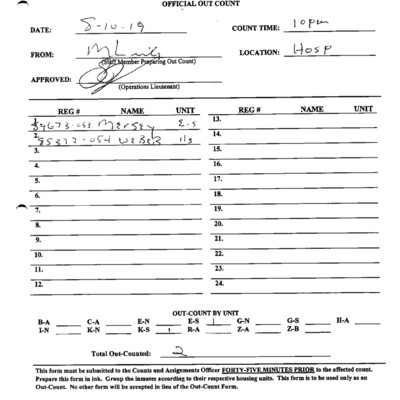 OFFICIAL OUT COUNT
DATE: 8-10-19 COUNT TIME: 10pm
FROM: LOCATION: HOSP
(Staff Member Preparing Out Count)
APPROVED:
(Operations Lieutenant)
REG # NAME UNIT REG # NAME UNIT
1. 89673-053 Mersey E-S 13.
2. 85377-054 WEBER 14.
3. 15.
4. 16.
5. 17.
6. 18.
7. 19.
8. 20.
9. 21.
10. 22.
11. 23.
12. 24.
OUT-COUNT BY UNIT
B-A C-A E-N E-S 1 G-N G-S H-A
I-N K-N K-S 1 R-A Z-A Z-B
Total Out-Counted: 2
This form must be submitted to the Counts and Assignments Officer FORTY-FIVE MINUTES PRIOR to the affected count.
Prepare this form in ink. Group the inmates according to their respective housing units. This form is to be used only as an
Out-Count. No other form will be accepted in lieu of the Out-Count Form.